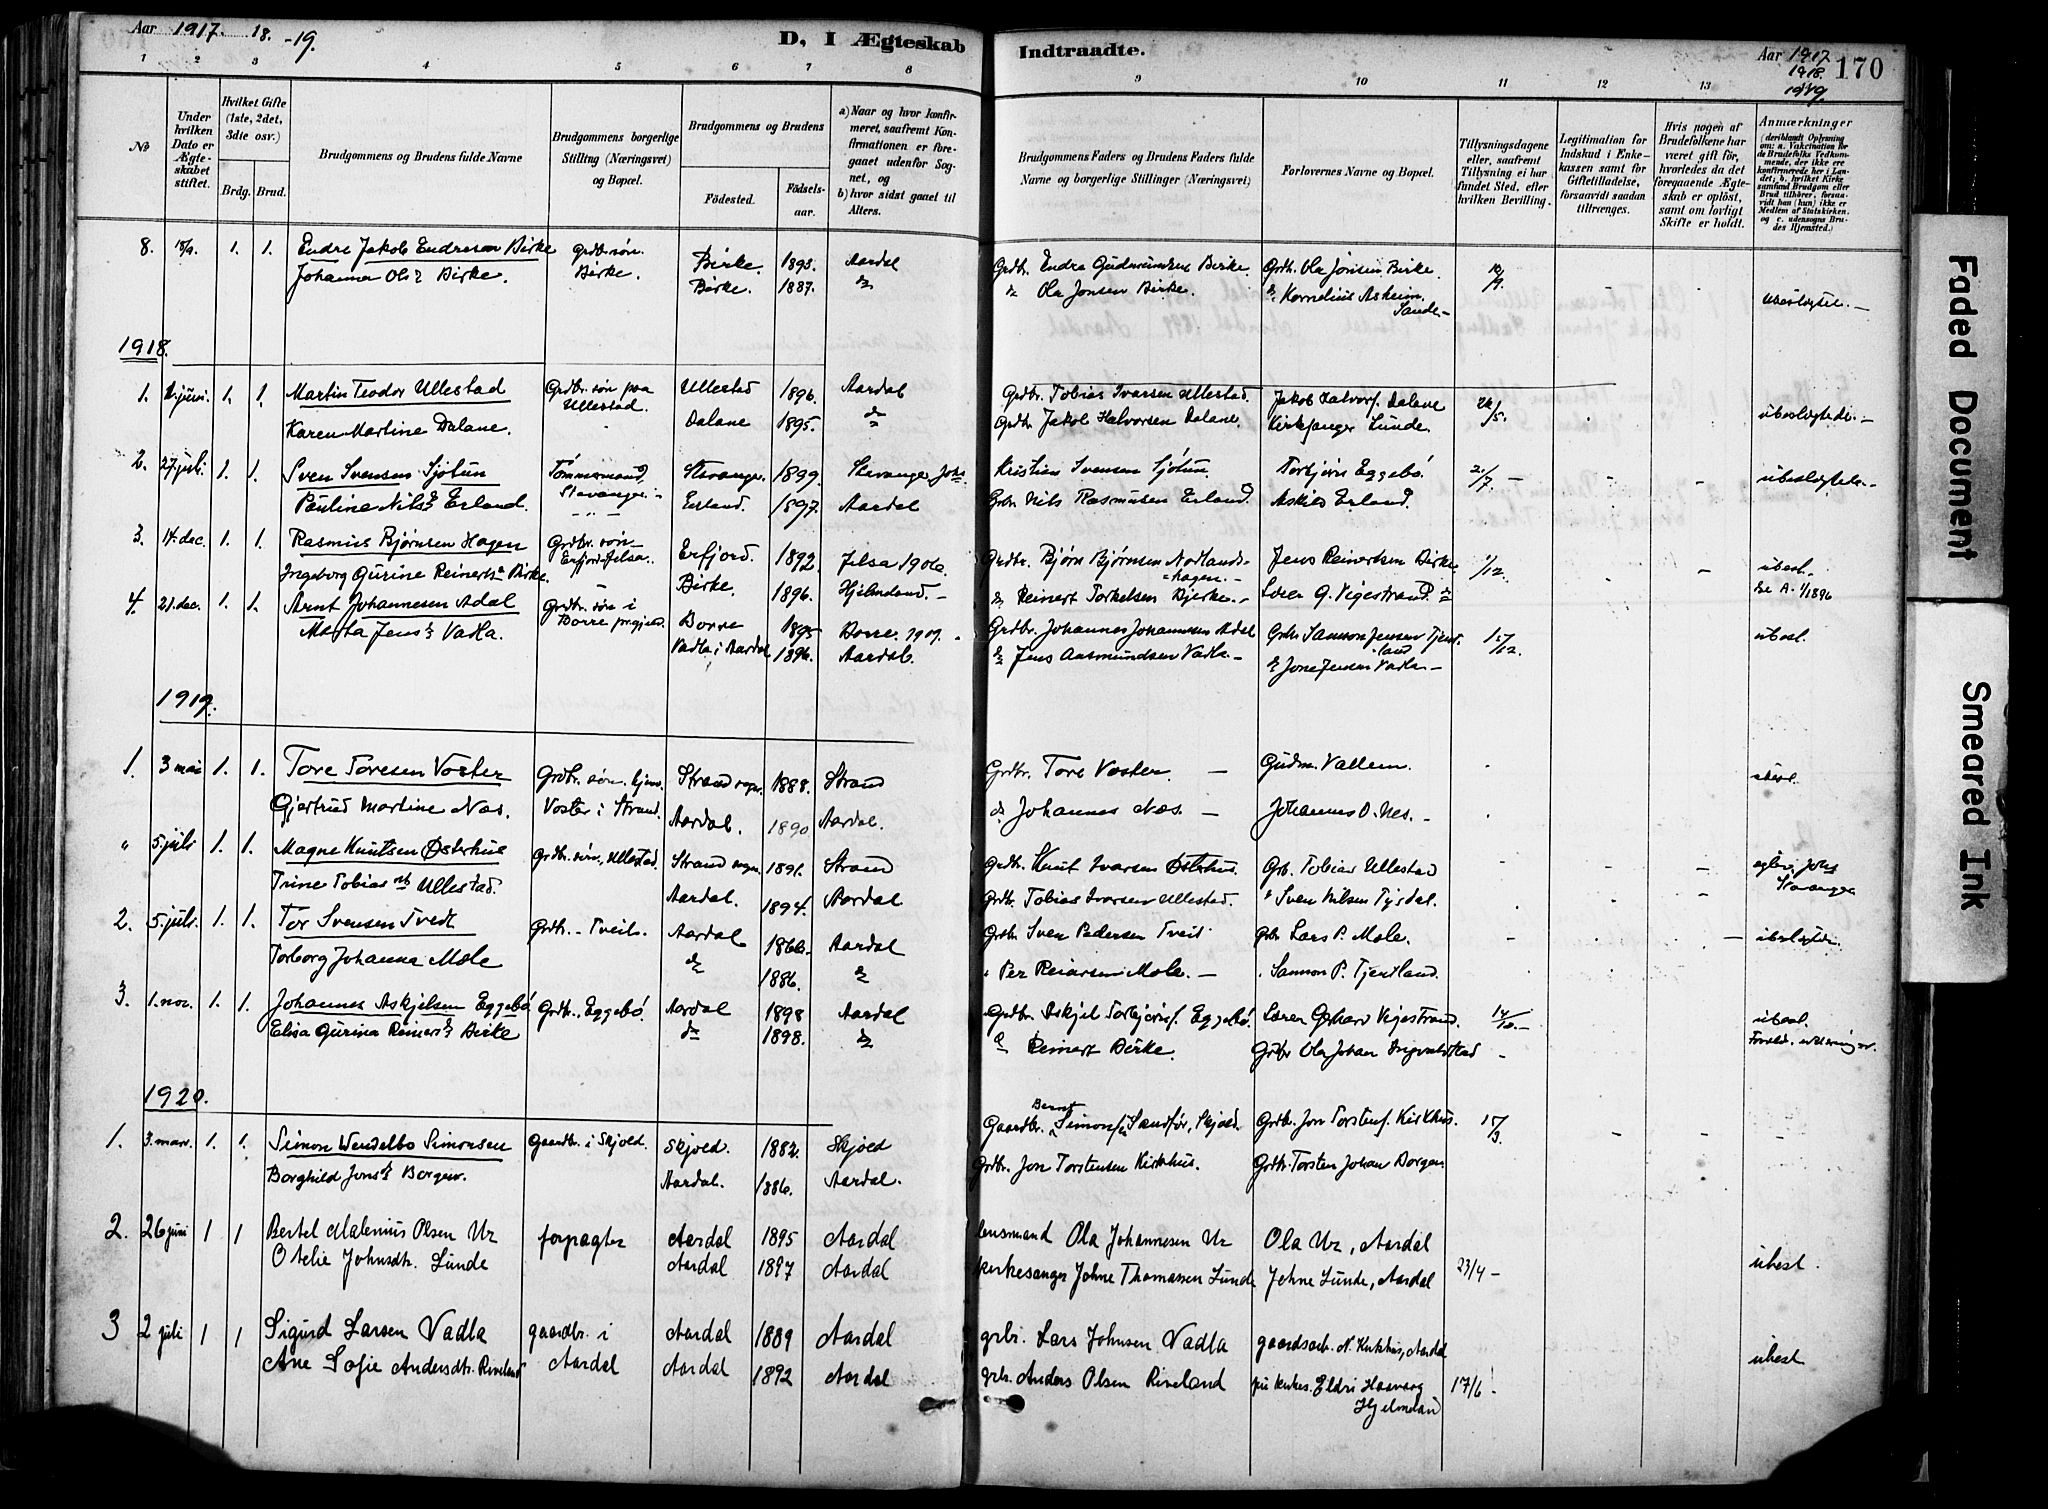 Aar 1917. 18. -19.
D, I Ægteskab Indtraadte.
Aar 1917
1918.
1919.
170
1 2 3 4 5 6 7 8 9 10 11 12 13
No
Under hvilken Dato er Ægteskabet stiftet.
Hvilket Gifte (1ste, 2det, 3die osv.)
Brdg. Brud.
Brudgommens og Brudens fulde Navne
Brudgommens borgerlige Stilling (Næringsvei) og Bopæl.
Brudgommens og Brudens
Fødested. Fødselsaar.
a) Naar og hvor konfirmeret, saafremt Konfirmationen er foregaaet udenfor Sognet, og
b) hvor sidst gaaet til Alters.
Brudgommens Faders og Brudens Faders fulde Navne og borgerlige Stillinger (Næringsvei)
Forlovernes Navne og Bopæl.
Tillysningsdagene eller, saafremt Tillysning ei har fundet Sted, efter hvilken Bevilling.
Legitimation for Indskud i Enkekassen samt for Giftetilladelse, forsaavidt saadan tiltrænges.
Hvis nogen af Brudefolkene har været gift før, hvorledes da det foregaaende Ægteskab er opløst, samt om lovligt Skifte er holdt.
Anmærkninger
(deriblandt Oplysning om: a. Vakcination for de Brudefolks Vedkommende, der ikke ere konfirmerede her i Landet; b. hvilket Kirkesamfund Brudgom eller Brud tilhører, forsaavidt han (hun) ikke er Medlem af Statskirken, og c. udensogns Brudes Hjemsted.)
8. 15/9. 1. 1. Endre Jakob Endresen Birke grdbr. søn. Birke. 1895. Aardal Grdbr. Endre Gudmundsen Birke. Grdb. Ola Jonsen Birke.
Johanna Olsd Birke. Birke. Birke. 1887. do do Ola Jonsen Birke. do Kornelius Askeim, Sande- ubeslegtet. -
1918.
1. 1. juni. 1. 1. Martin Teodor Ullestad Grdbr. søn paa Ullestad 1896. Aardal Grdbr. Tobias Ivarsen Ullestad. Jakob Halvors. Dalane 26/5.
Karen Martine Dalane. Ullestad. Dalane 1895. do Grdb. Jakob Halvorsen Dalane. Kirkesanger Lunde. ubeslegtede. -
2. 27. juli. 1. 1. Sven Svensen Sjøtun Tømmermand Stavanger. 1899. Stavanger Johs. Kristian Svensen Sjøtun Torbjørn Eggebø 21/7. - ubeslegtede. -
Pauline Nilsd Erland. Stavanger.- Erland. 1897. Aardal Grbr. Nils Rasmusen Erland. Askild Erland.
3. 14. dec. 1. 1. Rasmus Bjørnsen Hagen Grdbr. søn- Erfjord. 1892. Jelsa 1906. Grdbr. Bjørn Bjørnsen Nodlands- Jens Reinertsen Birke. 1/12. ubesl.
Ingeborg Gurine Reinertsd Birke. Erfjord Jelsa. Birke. 1896. Hjelmeland. - hagen. -
do Reinert Torkelsen Bjerke. - Søren G. Vigestrand do Se A. 1/1896
4. 21. dec. 1. 1. Arnt Johannesen Adal Grdbr. søn i Borre 1895 Borre. 1909. Grdbr. Johannes Johannesen Adal Grdb. Samson Jensen Tjentland 15/12. ubesl.
Marta Jensd Vadla. Borre prgjeld. Vadla i Aardal 1896. Aardal. do Jens Aasmundsen Vadla. - do Jone Jensen Vadla -
1919.
1. 3 mai 1. 1. Tore Toresen Voster Grdbr. søn. Strand sogn 1888. Strand Grdbr. Tore Voster. - Gudm. Vallem. ubesl.
Gjertrud Martine Nas. Voster i Strand. Aardal. 1890. Aardal. do Johannes Næs. - Johannes O. Nes. -
" 5. juli 1. 1. Magne Knutsen Østerhus Grdbr. søn, Ullestad. Strand sogn 1891. Strand Grdbr. Knut Ivarsen Østerhus. Grb. Tobias Ullestad
Trine Tobiasdt Ullestad. Aardal. 1894. Aardal Grdb. Tobias Ivarsen Ullestad. " Sven Nilsen Tysdal. Stavanger
2. 5. juli. 1. 1. Tor Svensen Tvedt Grdb. - Tveit. Aardal 1866. Aardal Grdbr Sven Pedersen Tveit Grbr Lars P. Mæle. - ubeslegtede.
Torborg Johanna Mæle do 1886. do " Per Reiarsen Mæle. - " Samson P. Tjentland.
3. 1. nov. 1. 1. Johannes Askjelsen Eggebø Grdbr. Eggebø. Aardal 1898 Aardal Grdbr. Askjel Torbjørns. Eggebø. Søren Gerhard Vigestrand. 14/10. - ubesl.
Elisa Gurina Reinertsd Birke do 1898. do do Reinert Birke. Grdbr Ola Johan Ingvaldstad -
1920.
1. 3. mars. 1. 1. Simon Wendelbo Simonsen gaardbr. i Skjold. Skjold. 1882. Skjold Gaardbr. Bernt Simons. Sandfør, Skjold. Grdbr. Jon Torstens. Kirkhus. 15/3.
Borghild Jonsd Borgen. Aardal. 1886. Aardal. Grdbr. Jon Torstensen Kirkhus. Grdbr. Torsten Johan Borgen
2. 26 juni 1 1 Bertel Malenius Olsen Ur forpagter Aardal 1895 Aardal lensmand Ola Johannesen Ur Ola Ur, Aardal
Otelie Johnsdtr. Lunde Aardal 1897 Aardal kirkesanger Johne Thomassen Lunde Johne Lunde, Aardal 23/4 - ubesl.
3 2 juli 1 1 Sigurd Larsen Vadla gaardbr. i Aardal 1889 Aardal grbr. Lars Johnsen Vadla gaardsarb. N. Kirkhus, Aardal
Ane Sofie Andersdtr. Riveland Aardal Aardal 1892 Aardal grbr. Anders Olsen Riveland Eldri Haavarg Hjelmeland 17/6 - ubesl
Faded Document
Smeared Ink